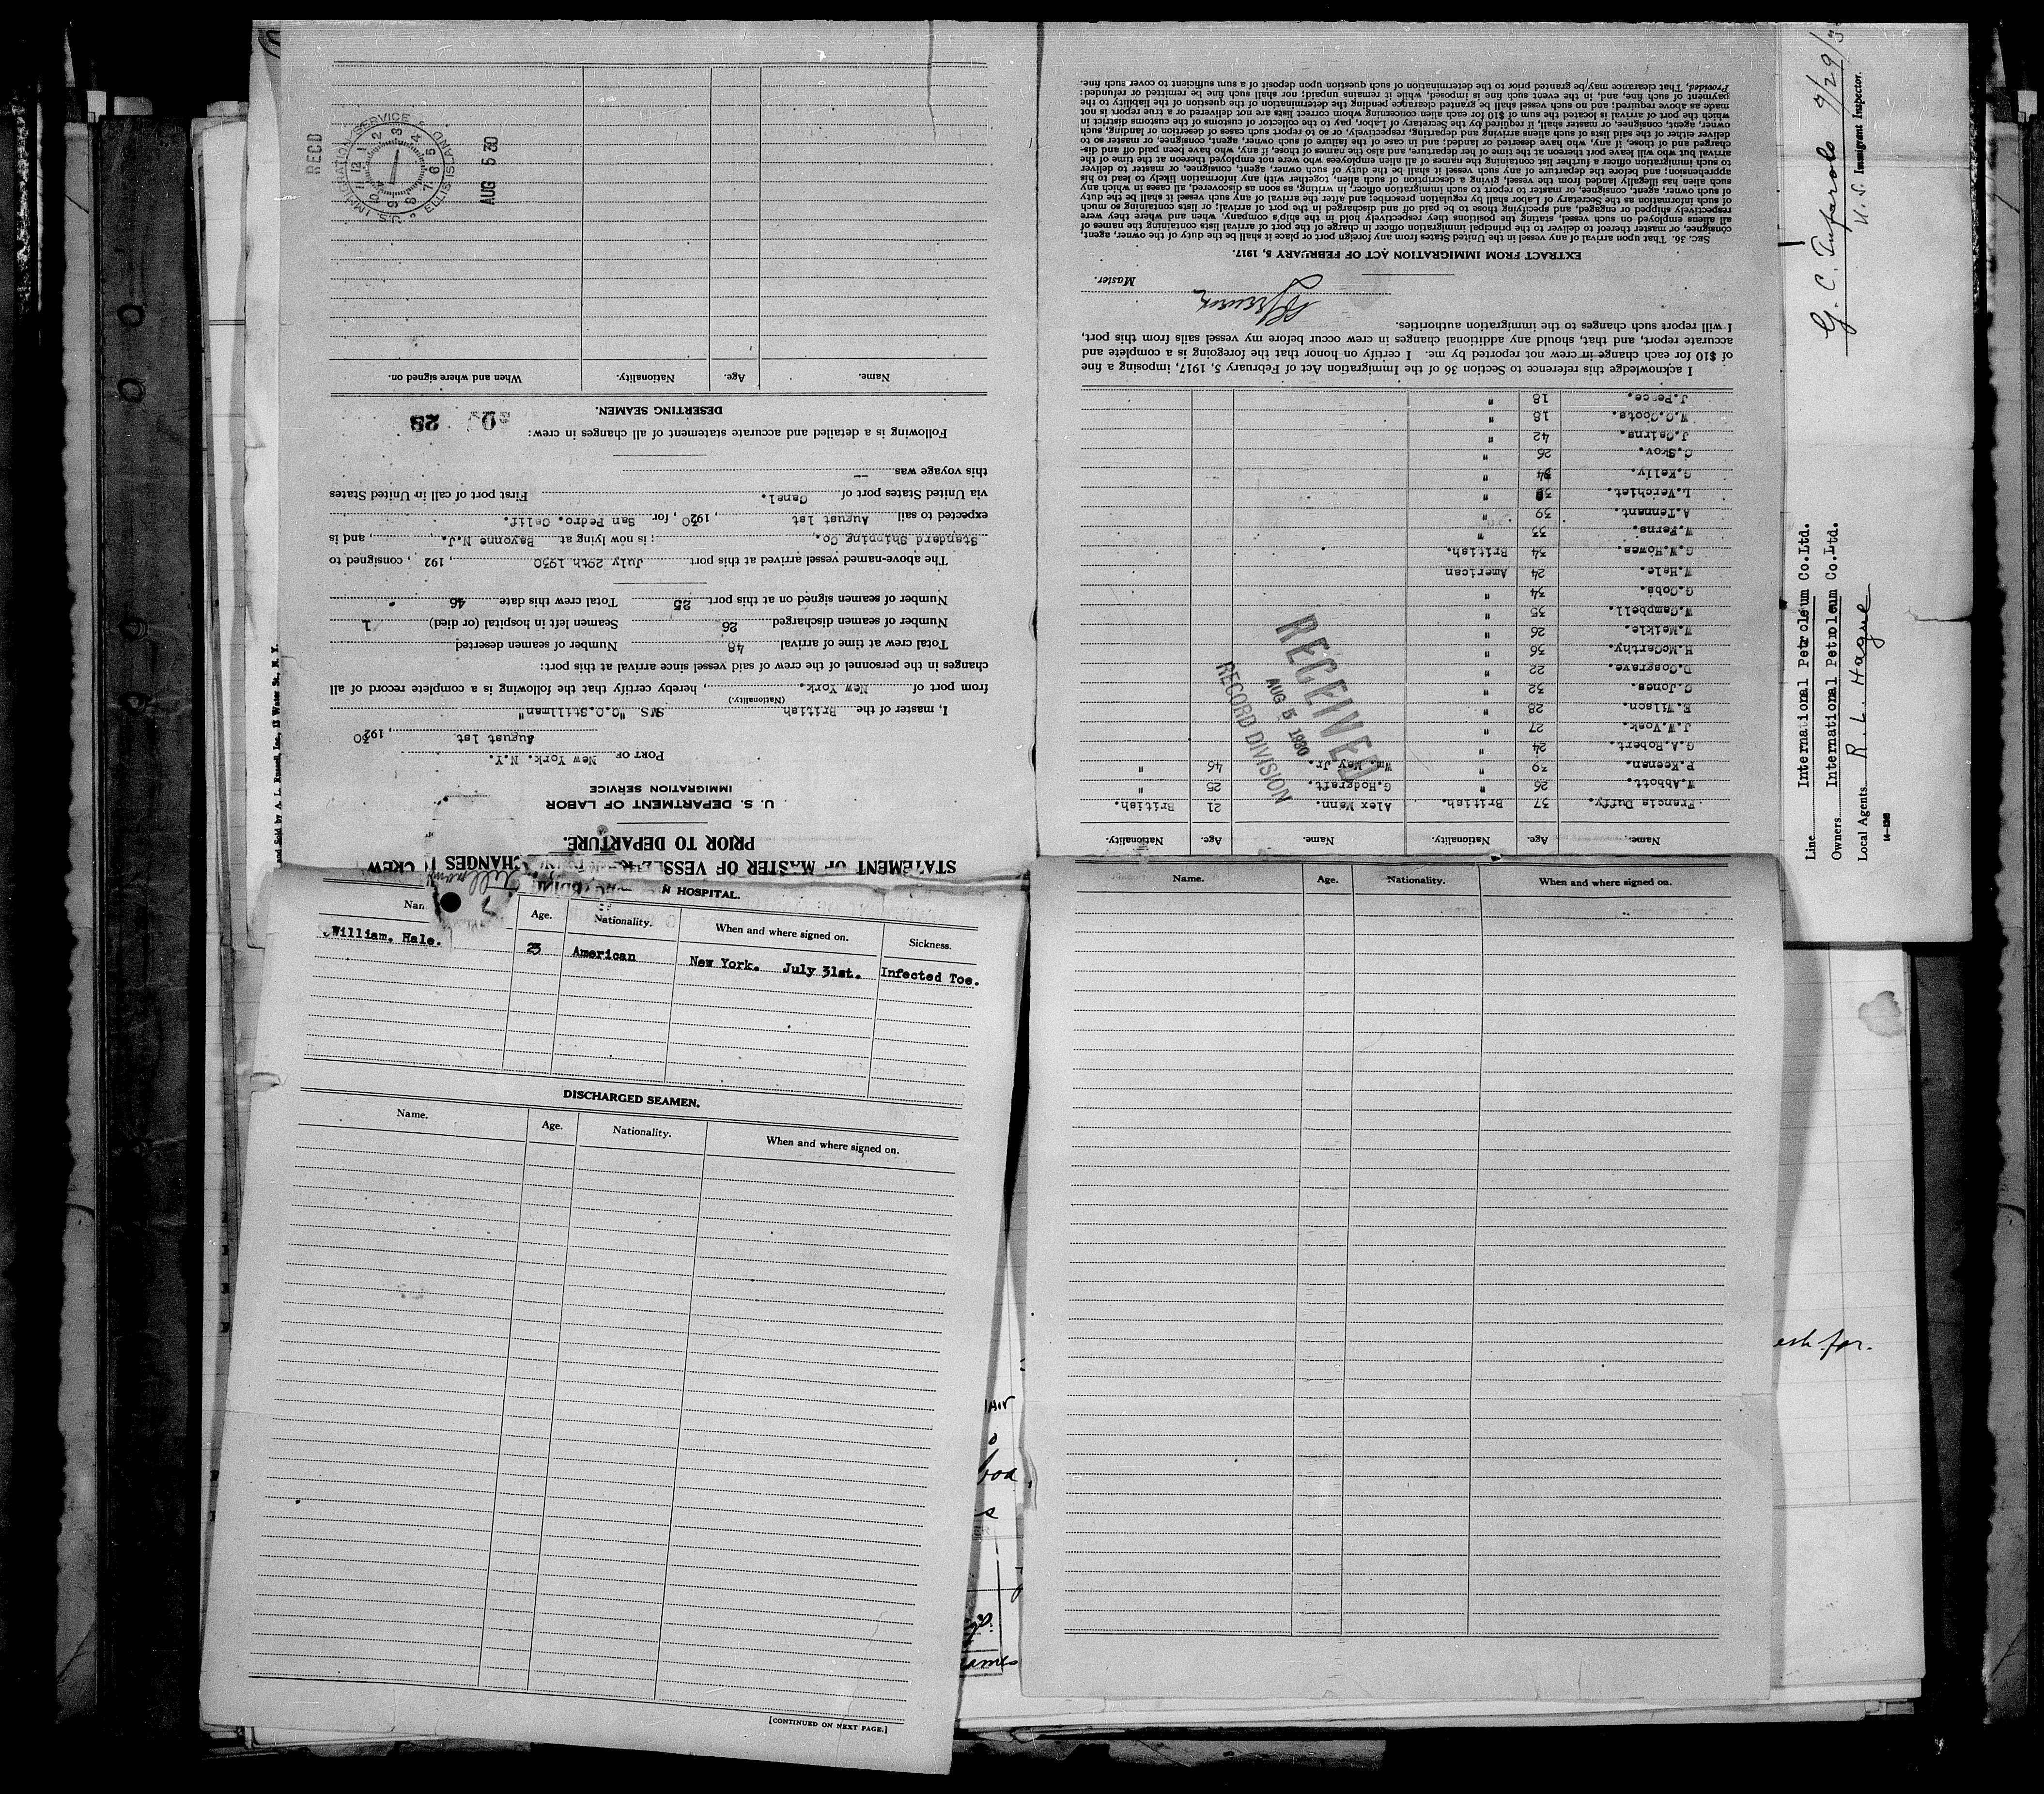 STATEMENT OF MASTER OF VESSEL CHANGES CREW
PRIOR TO DEPARTURE.
U. S. DEPARTMENT OF LABOR
IMMIGRATION SERVICE
PORT OF New York. N.Y.
August 1st , 1930
I, master of the British S/S "C.O.Stillman"
(Nationality.)
from port of New York. , hereby certify that the following is a complete record of all
changes in the personnel of the crew of said vessel since arrival at this port:
Total crew at time of arrival 48 Number of seamen deserted
Number of seamen discharged 26 Seamen left in hospital (or died) 1
Number of seamen signed on at this port 25 Total crew this date 46
The above-named vessel arrived at this port July 29th 1930 , 192 , consigned to
Standard Shipping Co. ; is now lying at Bayonne N.J. , and is
expected to sail August 1st , 1930 , for San Pedro. Calif.
via United States port of Canal. First port of call in United States
this voyage was —
Following is a detailed and accurate statement of all changes in crew:
DESERTING SEAMEN. 28
Name. Age. Nationality. When and where signed on.
REC'D
U.S. IMMIGRATION SERVICE ELLIS ISLAND
AUG 5 30
and Sold by A. L. Russell, Inc., 13 Water St., N. Y.
Name. Age. Nationality. Name. Age. Nationality.
Francis Duffy. 37 British. Alex Mann. 21 British.
W.Abbott. 26 " G.Hodgraft. 25 "
P.Keenan. 39 " Wm. May Jr. 46 "
G.A.Robert. 24 "
J.W.Voak. 27 "
E.Wilson. 28 "
C.Jones. 32 "
D.Cosgrave. 22 "
H.McCarthy. 36 "
W.Meikle. 26 "
W.Campbell. 35 "
G.Cobs. 34 "
W.Hale. 24 American
G.W.Howes. 34 British.
W.Ferns. 33 "
A.Tennant. 39 "
L.Verchiet. "
G.Kelly. 34 "
C.Skov. 26 "
J.Cairns. 42 "
W.C.Coots. 18 "
J.Pence. 18 "
RECEIVED
AUG 5 1930
RECORD DIVISION
I acknowledge this reference to Section 36 of the Immigration Act of February 5, 1917, imposing a fine
of $10 for each change in crew not reported by me. I certify on honor that the foregoing is a complete and
accurate report, and that, should any additional changes in crew occur before my vessel sails from this port,
I will report such changes to the immigration authorities.
Master.
EXTRACT FROM IMMIGRATION ACT OF FEBRUARY 5, 1917.
Sec. 36. That upon arrival of any vessel in the United States from any foreign port or place it shall be the duty of the owner, agent,
consignee, or master thereof to deliver to the principal immigration officer in charge of the port of arrival lists containing the names of
all aliens employed on such vessel, stating the positions they respectively hold in the ship's company, when and where they were
respectively shipped or engaged, and specifying those to be paid off and discharged in the port of arrival; or lists containing so much
of such information as the Secretary of Labor shall by regulation prescribe; and after the arrival of any such vessel it shall be the duty
of such owner, agent, consignee, or master to report to such immigration officer, in writing, as soon as discovered, all cases in which any
such alien has illegally landed from the vessel, giving a description of such alien, together with any information likely to lead to his
apprehension; and before the departure of any such vessel it shall be the duty of such owner, agent, consignee, or master to deliver
to such immigration officer a further list containing the names of all alien employees who were not employed thereon at the time of the
arrival but who will leave port thereon at the time of her departure, and also the names of those, if any, who have been paid off and dis-
charged and of those, if any, who have deserted or landed; and in case of the failure of such owner, agent, consignee, or master so to
deliver either of the said lists of such aliens arriving and departing, respectively, or so to report such cases of desertion or landing, such
owner, agent, consignee, or master shall, if required by the Secretary of Labor, pay to the collector of customs of the customs district in
which the port of arrival is located the sum of $10 for each alien concerning whom correct lists are not delivered or a true report is not
made as above required; and no such vessel shall be granted clearance pending the determination of the question of the liability to the
payment of such fine, and, in the event such fine is imposed, while it remains unpaid; nor shall such fine be remitted or refunded:
Provided, That clearance may be granted prior to the determination of such question upon deposit of a sum sufficient to cover such fine.
Line International Petroleum Co.Ltd.
Owners International Petroleum Co.Ltd.
Local Agents R. L. Hague
14—1240
G. C. Tufarolo 7/29/3
U. S. Immigrant Inspector.
N HOSPITAL.
Nam Age. Nationality. When and where signed on. Sickness.
William. Hale. 23 American New York. July 31st. Infected Toe.
DISCHARGED SEAMEN.
Name. Age. Nationality. When and where signed on.
[CONTINUED ON NEXT PAGE.]
Name. Age. Nationality. When and where signed on.